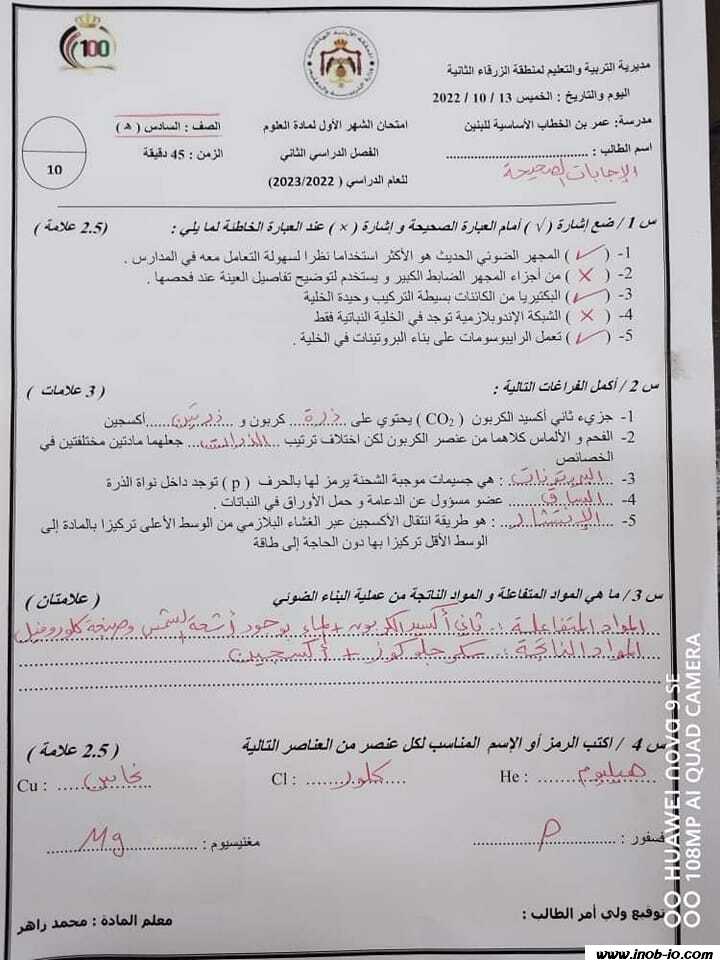 100
مديرية التربية والتعليم لمنطقة الزرقاء الثانية
اليوم والتاريخ : الخميس 13 / 10 / 2022
مدرسة: عمر بن الخطاب الأساسية للبنين
امتحان الشهر الأول لمادة العلوم
الصف : السادس ( هـ )
اسم الطالب : ........................................
الفصل الدراسي الثاني
الزمن : 45 دقيقة
الإجابات الصحيحة
للعام الدراسي ( 2023/2022)
10
س 1/ ضع إشارة ( √ ) أمام العبارة الصحيحة و إشارة ( × ) عند العبارة الخاطئة لما يلي : (2.5 علامة )
1- ( ✓ ) المجهر الضوئي الحديث هو الأكثر استخداما نظرا لسهولة التعامل معه في المدارس .
2- ( × ) من أجزاء المجهر الضابط الكبير و يستخدم لتوضيح تفاصيل العينة عند فحصها .
3- ( ✓ ) البكتيريا من الكائنات بسيطة التركيب وحيدة الخلية
4- ( × ) الشبكة الإندوبلازمية توجد في الخلية النباتية فقط
5- ( ✓ ) تعمل الرايبوسومات على بناء البروتينات في الخلية .
س 2/ أكمل الفراغات التالية : ( 3 علامات )
1- جزيء ثاني أكسيد الكربون ( CO2 ) يحتوي على ذرة كربون و ذرتين أكسجين
2- الفحم و الألماس كلاهما من عنصر الكربون لكن اختلاف ترتيب الذرات جعلهما مادتين مختلفتين في
الخصائص
3- البروتونات : هي جسيمات موجبة الشحنة يرمز لها بالحرف ( p ) توجد داخل نواة الذرة
4- الساق عضو مسؤول عن الدعامة و حمل الأوراق في النباتات .
5- الإنتشار : هو طريقة انتقال الأكسجين عبر الغشاء البلازمي من الوسط الأعلى تركيزا بالمادة إلى
الوسط الأقل تركيزا بها دون الحاجة إلى طاقة
س 3/ ما هي المواد المتفاعلة و المواد الناتجة من عملية البناء الضوئي ( علامتان )
المواد المتفاعلة : ثاني أكسيد الكربون + ماء بوجود أشعة الشمس وصبغة كلوروفيل
المواد الناتجة : سكر جلوكوز + أكسجين
س 4 / اكتب الرمز أو الإسم المناسب لكل عنصر من العناصر التالية ( 2.5 علامة )
He : هيليوم Cl : كلور Cu : نحاس
فسفور : P مغنيسيوم : Mg
توقيع ولي أمر الطالب : معلم المادة : محمد زاهر
HUAWEI nova 9 SE
108MP AI QUAD CAMERA
www.inob-jo.com